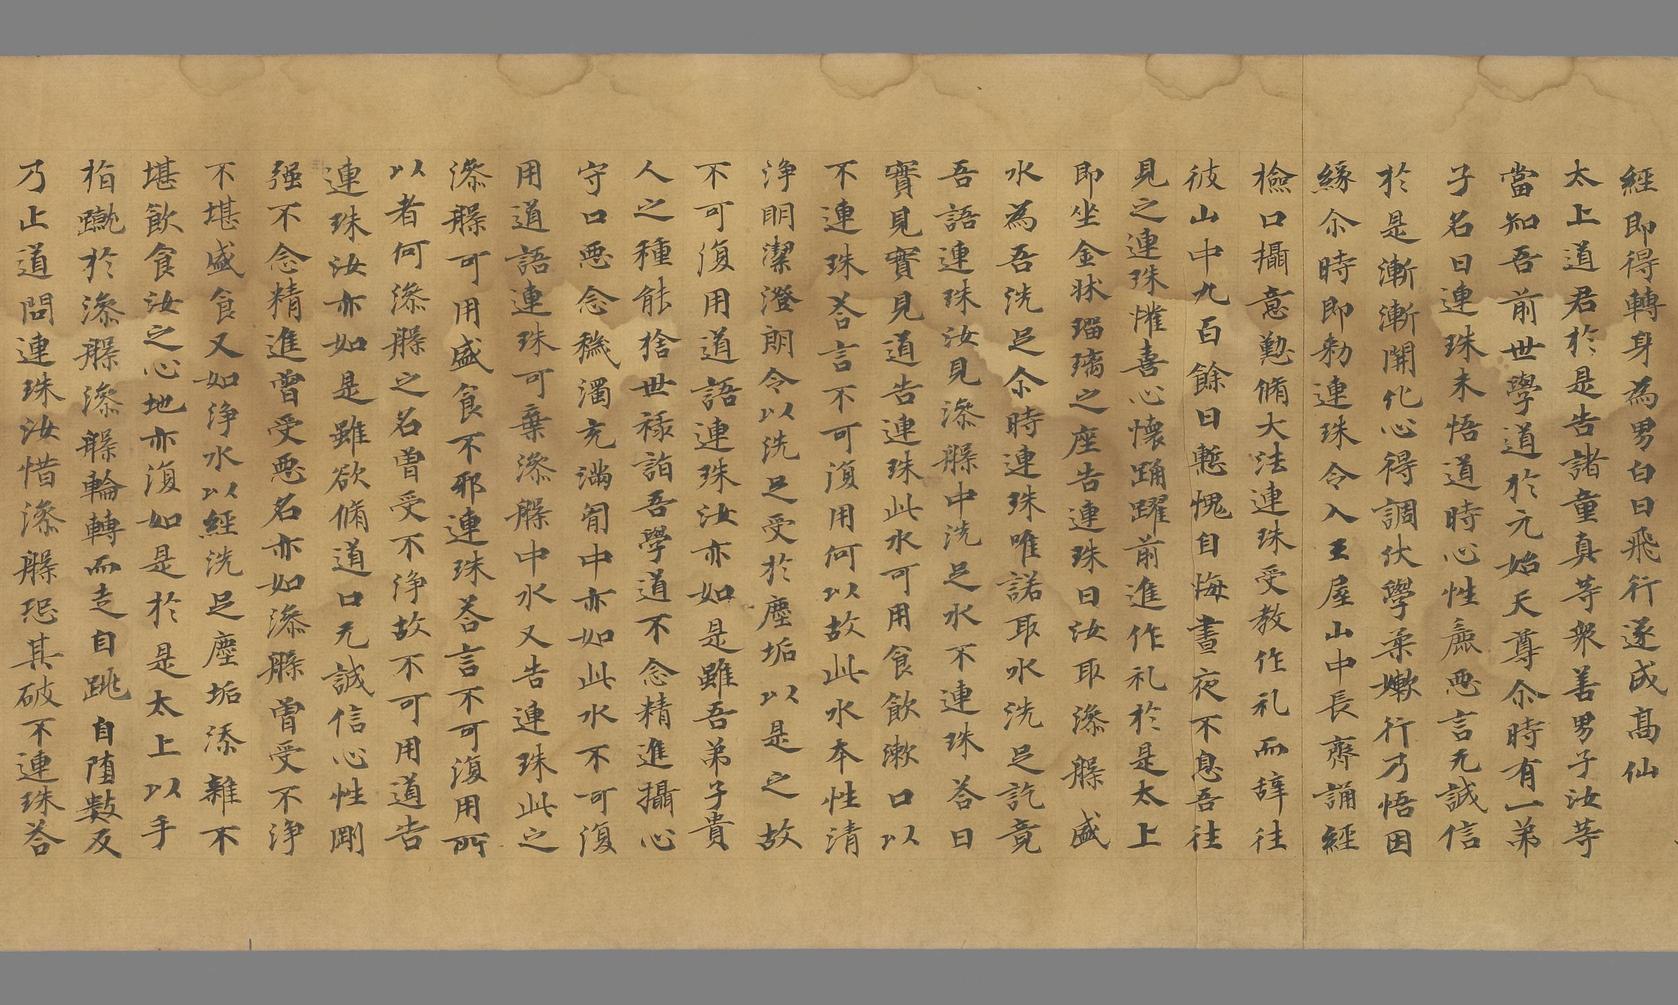 經即得轉身為男白日飛行遂成高仙
太上道君於是告諸童真等衆善男子汝等
當知吾前世學道於元始天尊尒時有一弟
子名曰連珠未悟道時心性麁惡言无誠信
於是漸漸開化心得調伏學柔嫰行乃悟因
緣尒時即勑連珠令入王屋山中長齊誦經
檢口攝意懃脩大法連珠受教作礼而辞往
彼山中九百餘日慙愧自悔晝夜不息吾往
見之連珠懽喜心懷踊躍前進作礼於是太上
即坐金牀瑠璃之座告連珠曰汝取澡槃盛
水為吾洗足尒時連珠唯諾取水洗足訖竟
吾語連珠汝見澡槃中洗足水不連珠荅曰
實見實見道告連珠此水可用食飲漱口以
不連珠荅言不可復用何以故此水本性清
淨明潔澄朗令以洗足受於塵垢以是之故
不可復用道語連珠汝亦如是雖吾弟子貴
人之種能捨世祿詣吾學道不念精進攝心
守口惡念穢濁充滿匈中亦如此水不可復
用道語連珠可棄澡槃中水又告連珠此之
澡槃可用盛食不邪連珠荅言不可復用所
以者何澡槃之名曾受不淨故不可用道告
連珠汝亦如是雖欲脩道口无誠信心性剛
强不念精進曾受惡名亦如澡槃曾受不淨
不堪盛食又如淨水以經洗足塵垢添雜不
堪飲食汝之心地亦復如是於是太上以手
指蹴於澡槃澡槃輪轉而走自跳自墮數反
乃止道問連珠汝惜澡槃恐其破不連珠荅